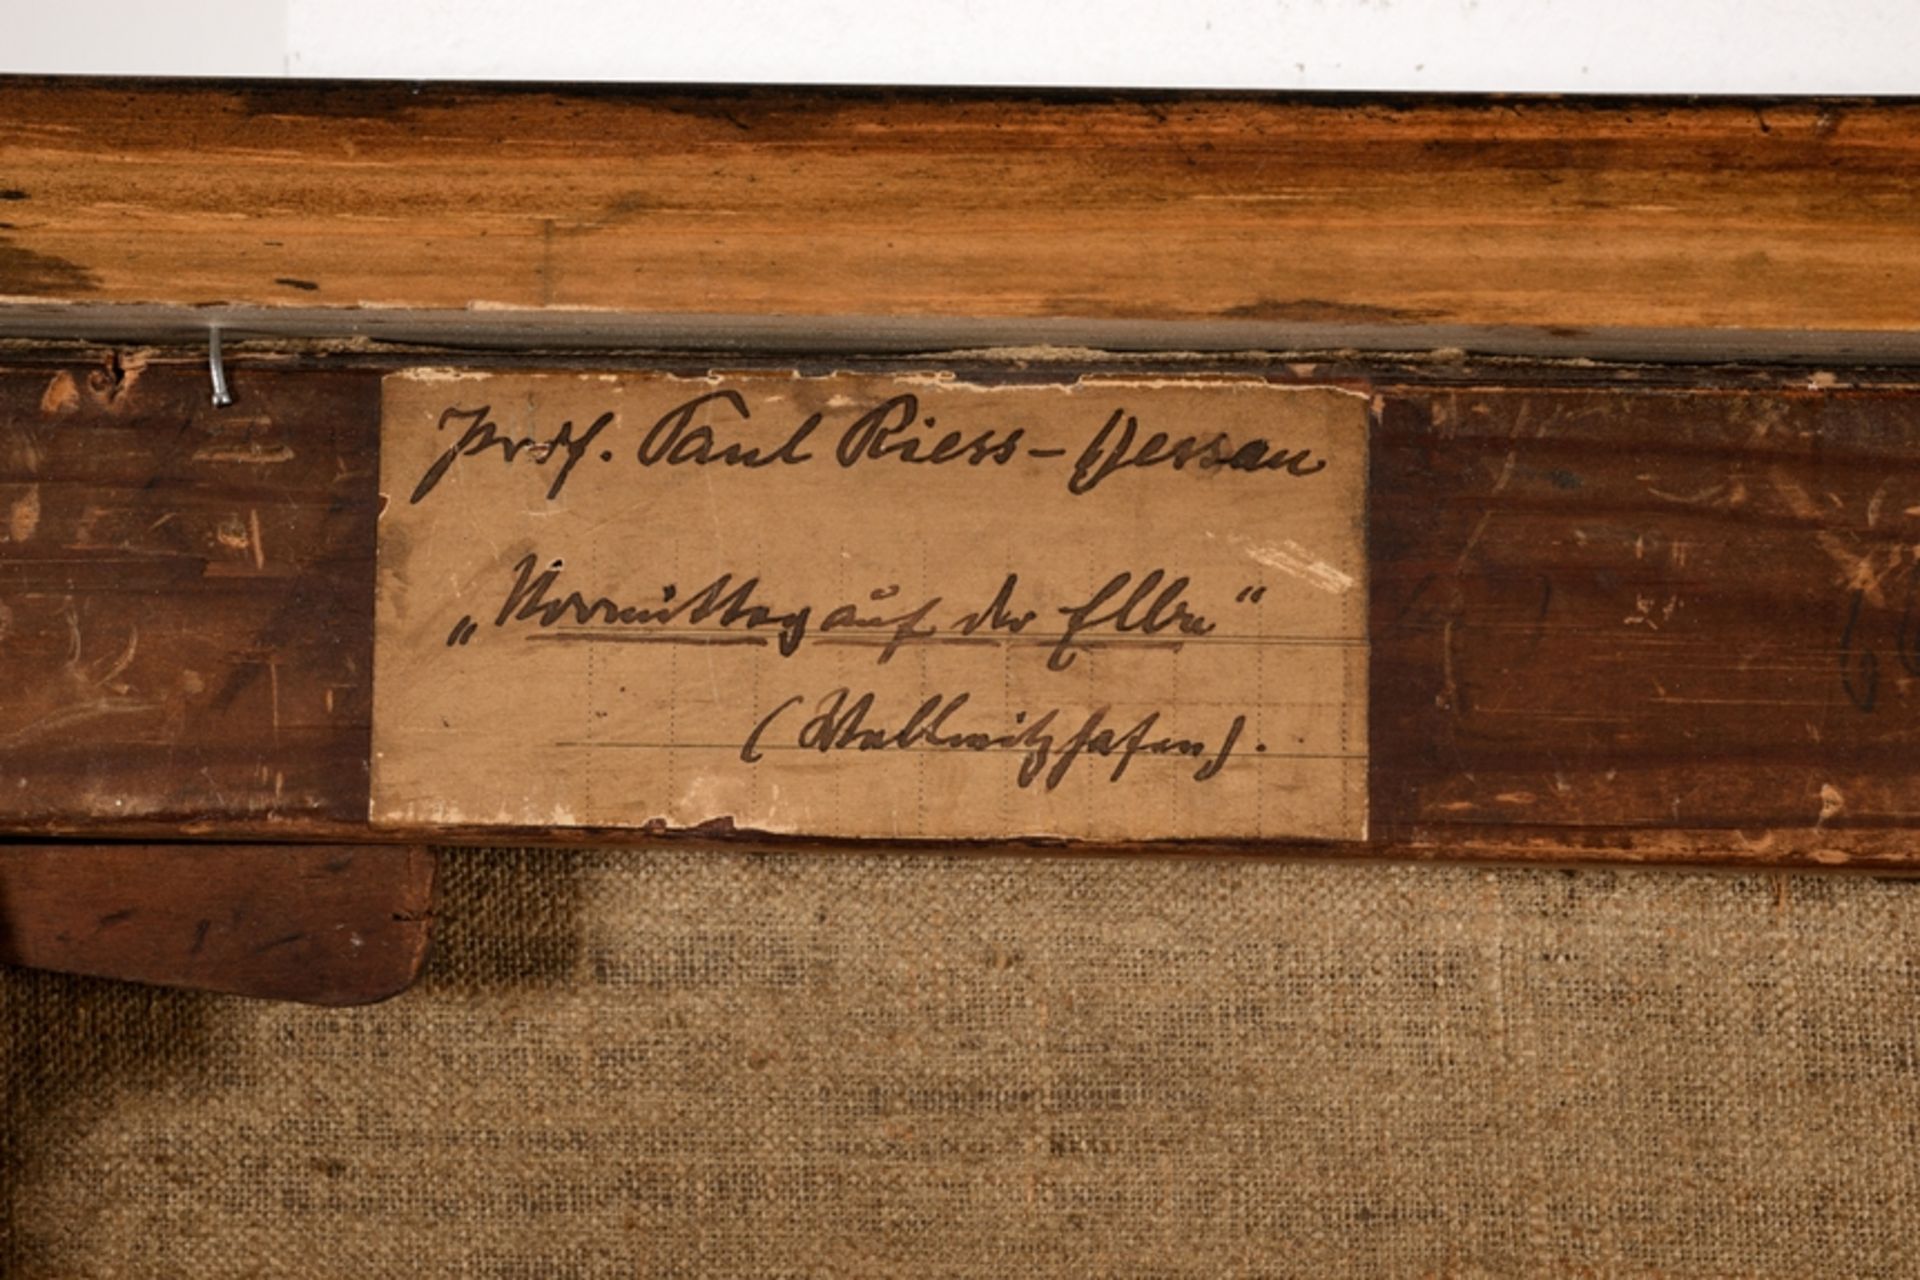 Prof. Paul Riess – Dessau
„Vormittag auf der Elbe“
(Wallwitzhafen).